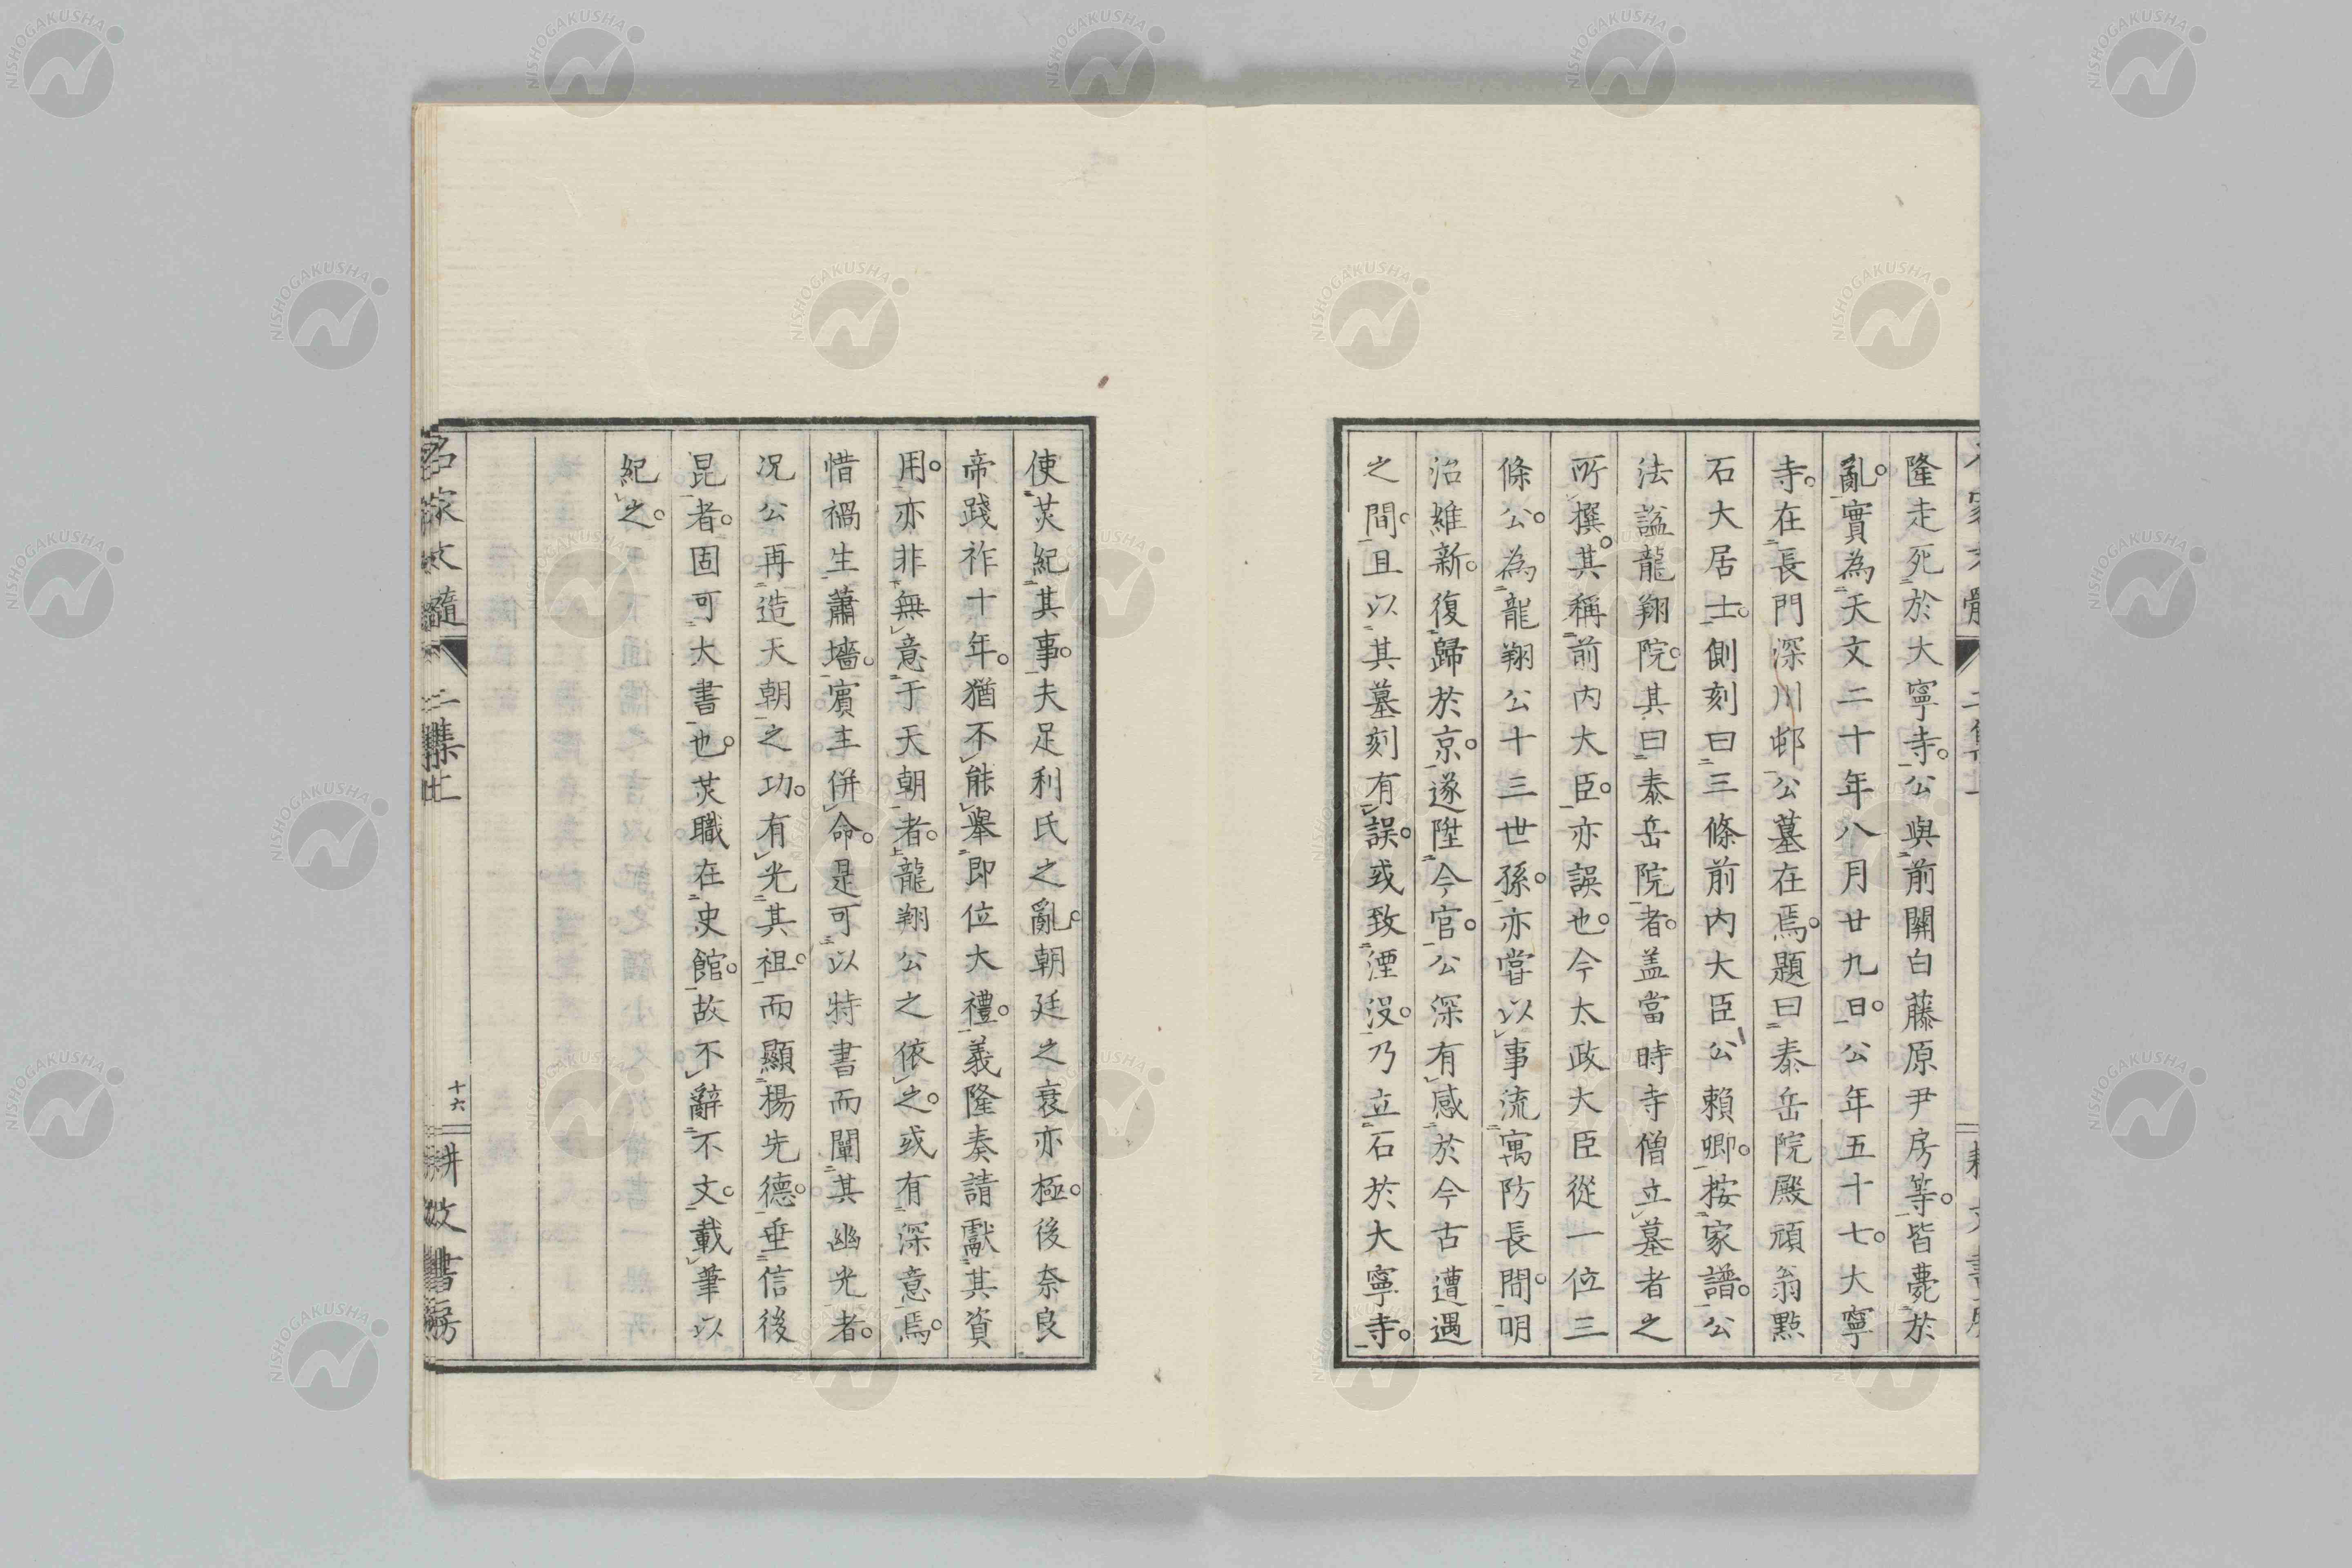 隆走死於大寧寺。公與前關白藤原尹房等。皆薨於
亂。實為天文二十年八月廿九日。公年五十七。大寧
寺。在長門深川邨。公墓在焉。題曰泰岳院殿頑翁點
石大居士。側刻曰三條前內大臣公賴卿。按家譜。公
法謚龍翔院。其曰泰岳院者。盖當時寺僧立墓者之
所撰。其稱前內大臣。亦誤也。今太政大臣從一位三
條公。為龍翔公十三世孫。亦嘗以事流寓防長間。明
治維新。復歸於京。遂陞今官。公深有感於今古遭遇
之間。且以其墓刻有誤。或致湮沒。乃立石於大寧寺。
使炗紀其事。夫足利氏之亂。朝廷之衰亦極。後奈良
帝踐祚十年。猶不能舉即位大禮。義隆奏請獻其資
用。亦非無意于天朝者。龍翔公之依之。或有深意焉。
惜禍生蕭墻。賓主併命。是可以特書而闡其幽光者。
况公再造天朝之功。有光其祖。而顯揚先德。垂信後
昆者。固可大書也。炗職在史館。故不辭不文。載筆以
紀之。
名家文髓
二集上
十六
耕文書房
NISHOGAKUSHA